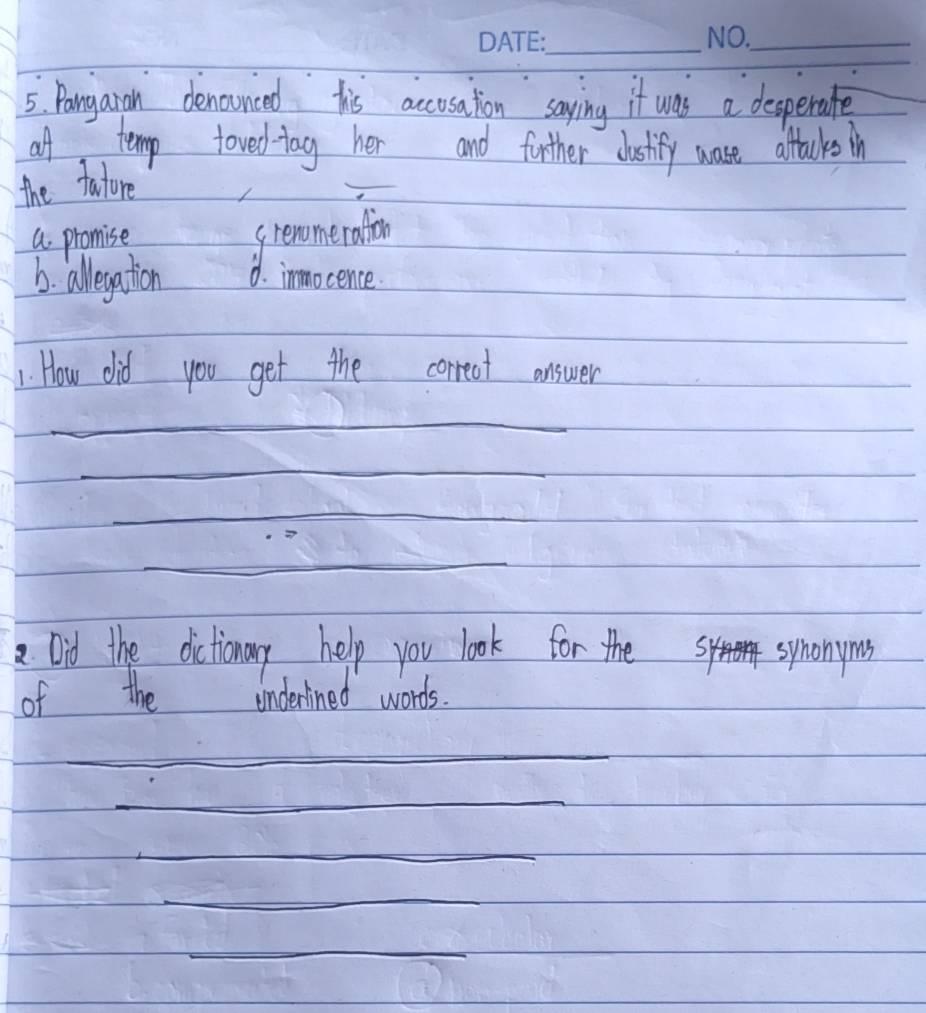 DATE:__________ NO.__________
5. Pangaran denounced this accusation saying it was a desperate
at temp toved-tag her and further Justify wase attacks in
the tature
a. promise c renumeration
b. allegation d. immocence.
1. How did you get the correct answer
2. Did the dictionary help you look for the synonyms
of the underlined words.